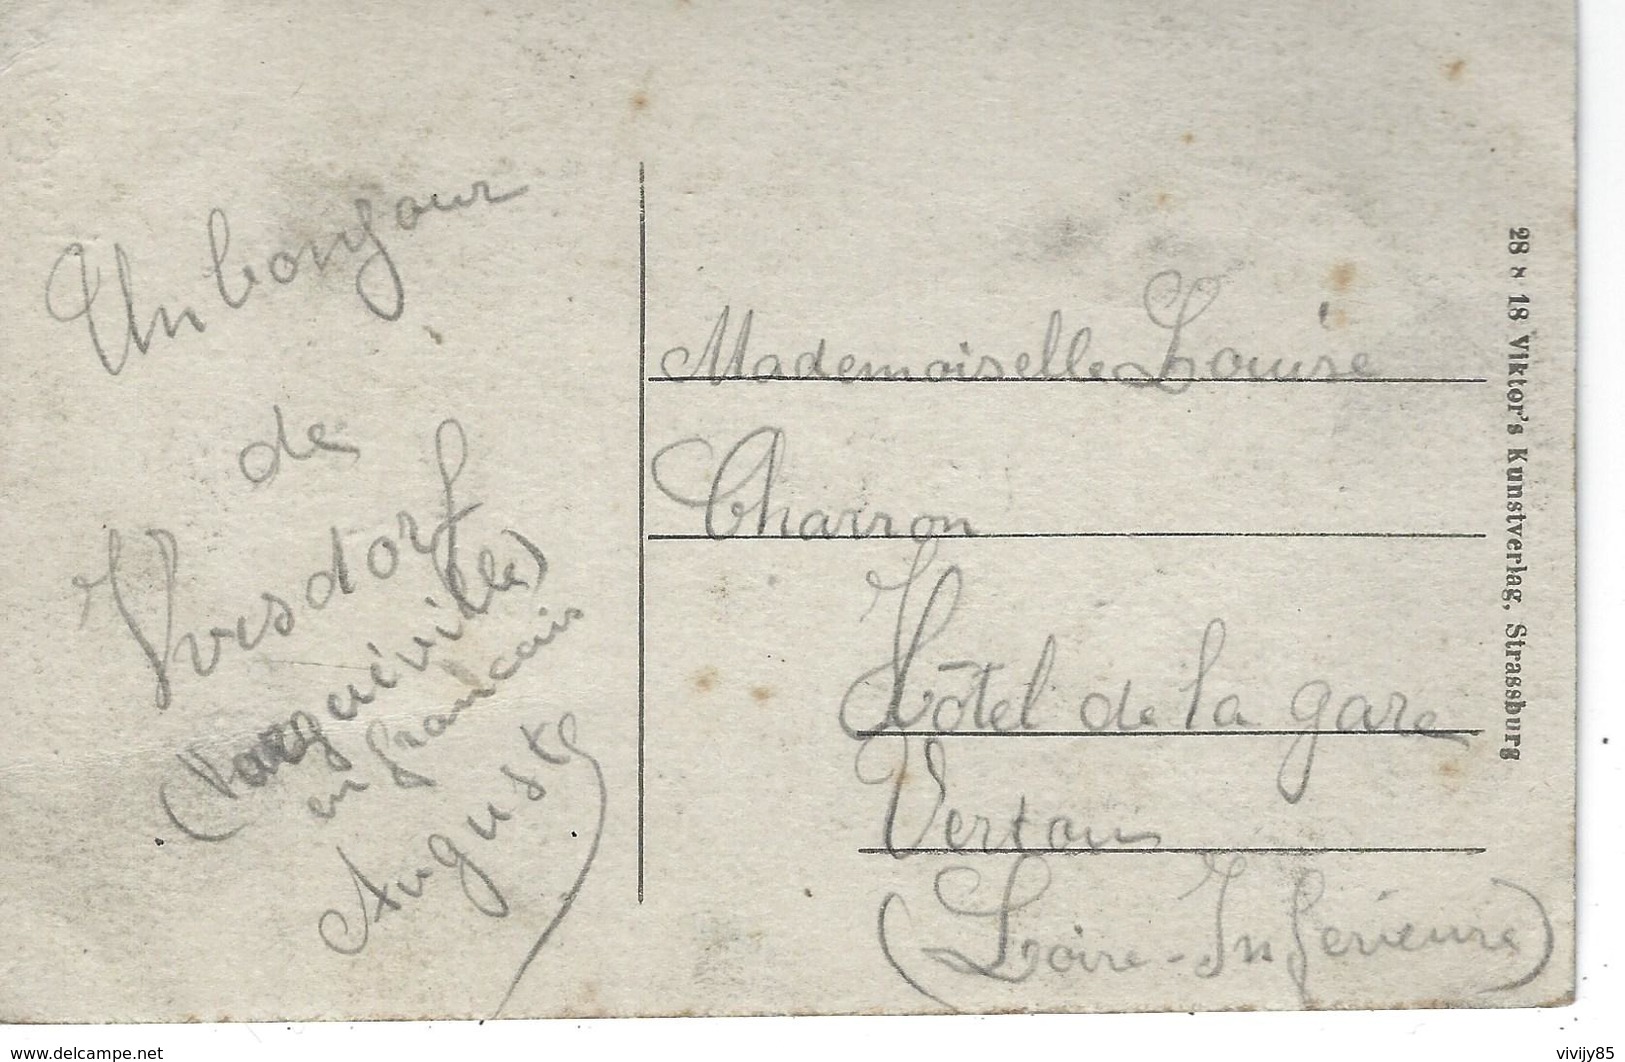 Un bonjour
de
Yvesdorf
(Varguéville)
en francais
Auguste
Mademoiselle Louise
Charron
Hôtel de la gare
Vertou
(Loire-Inférieure)
28 * 18 Viktor's Kunstverlag, Strassburg
www.delcampe.net
vivijy85